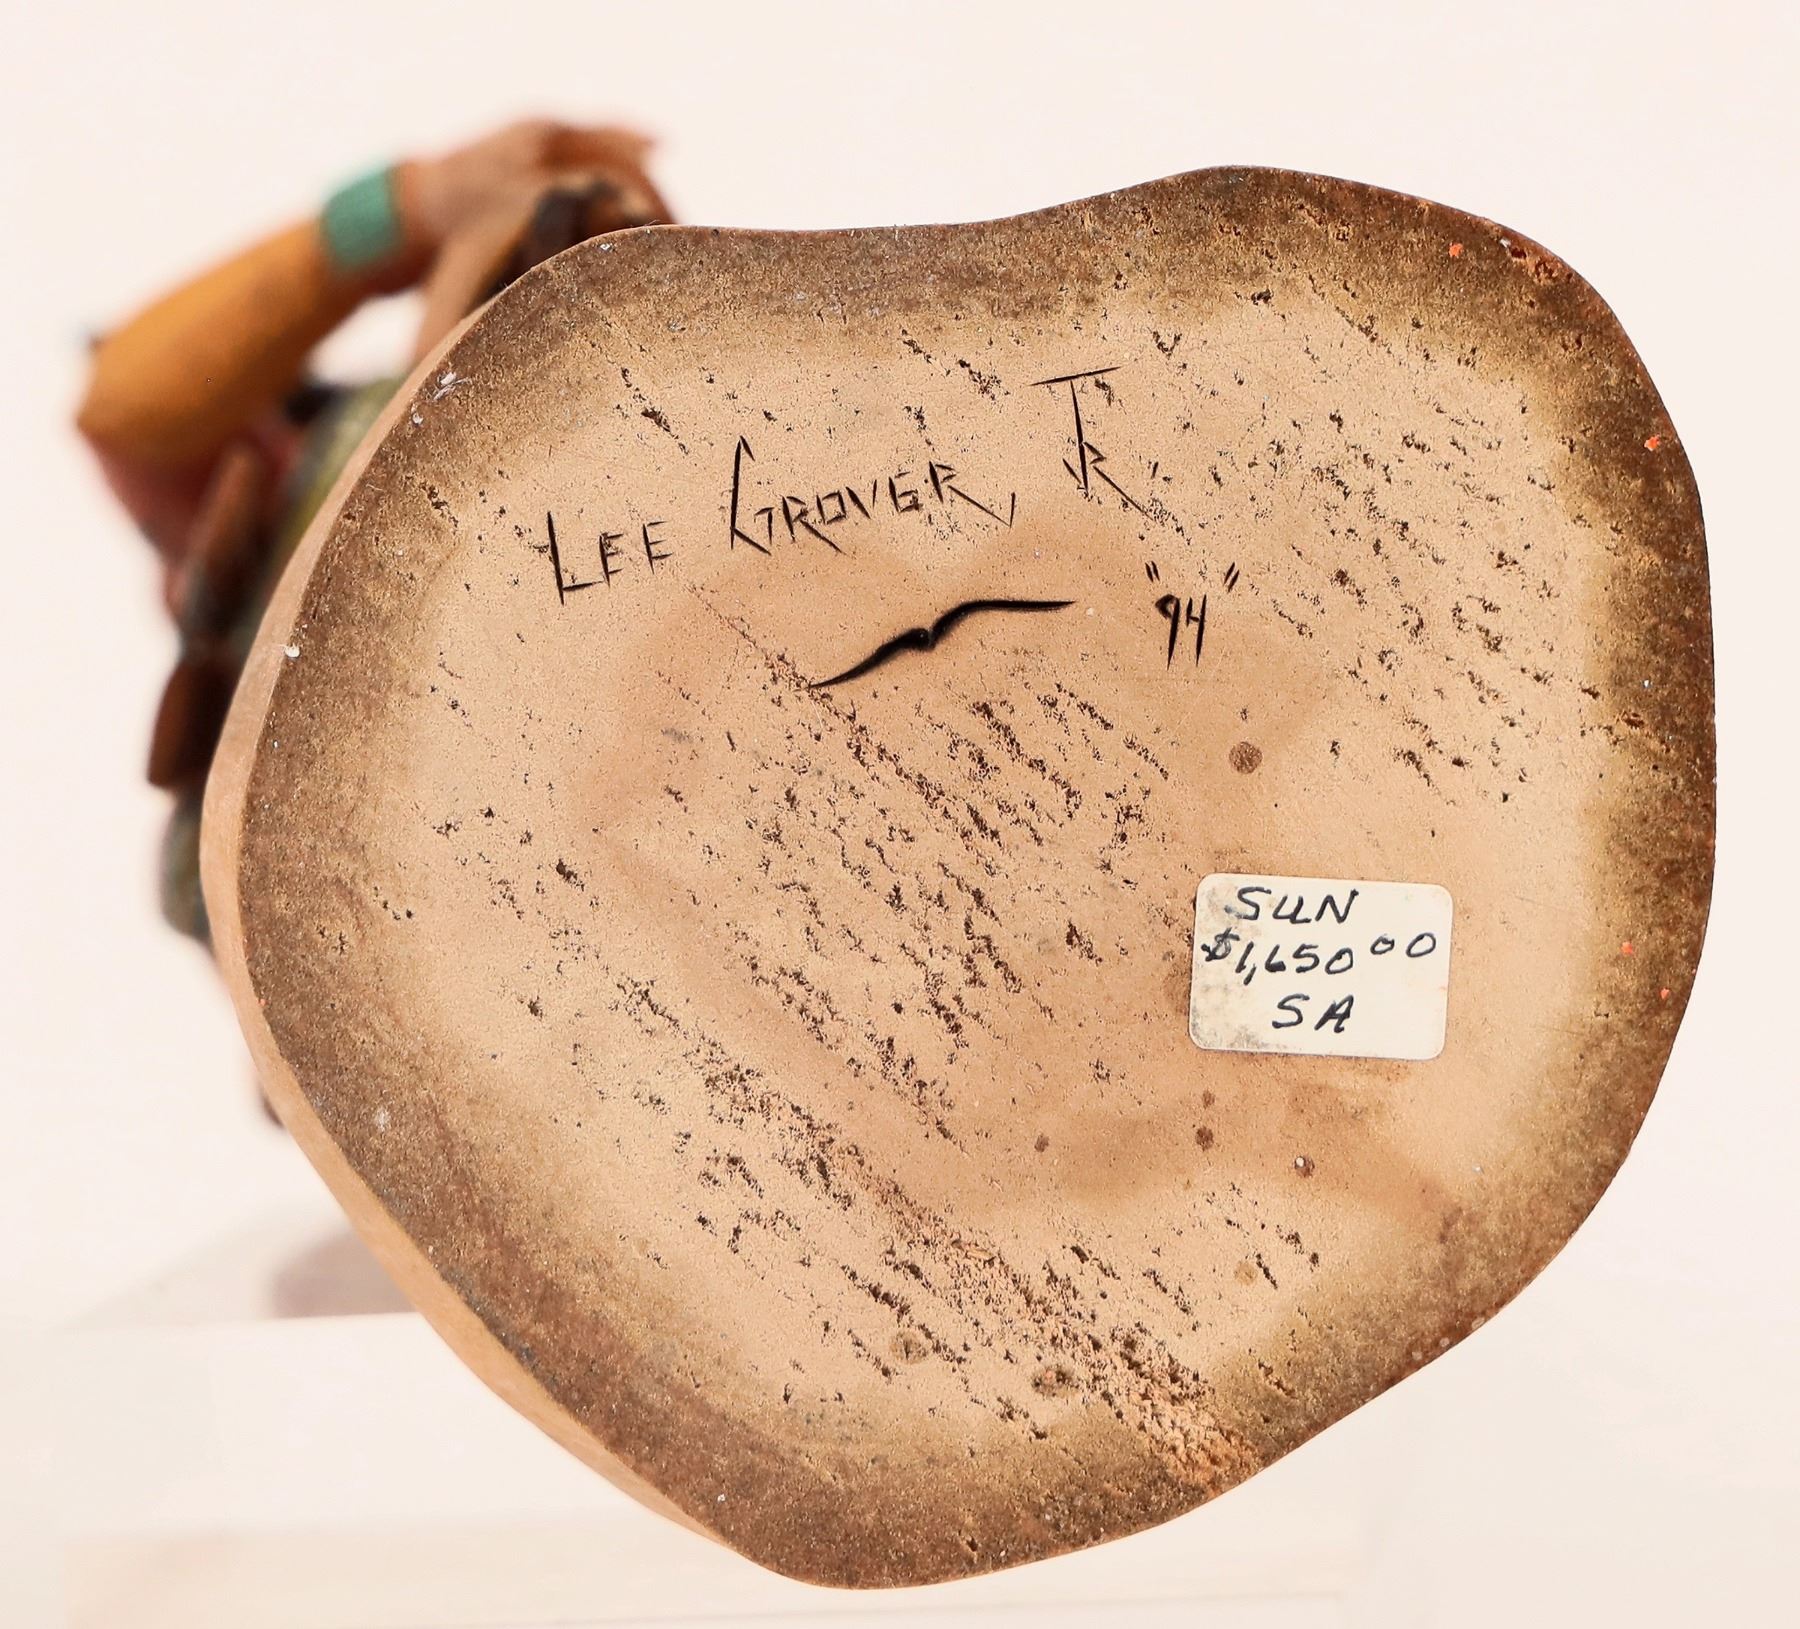 LEE GROVER, JR
"94"
SUN
$1,650 00
SA